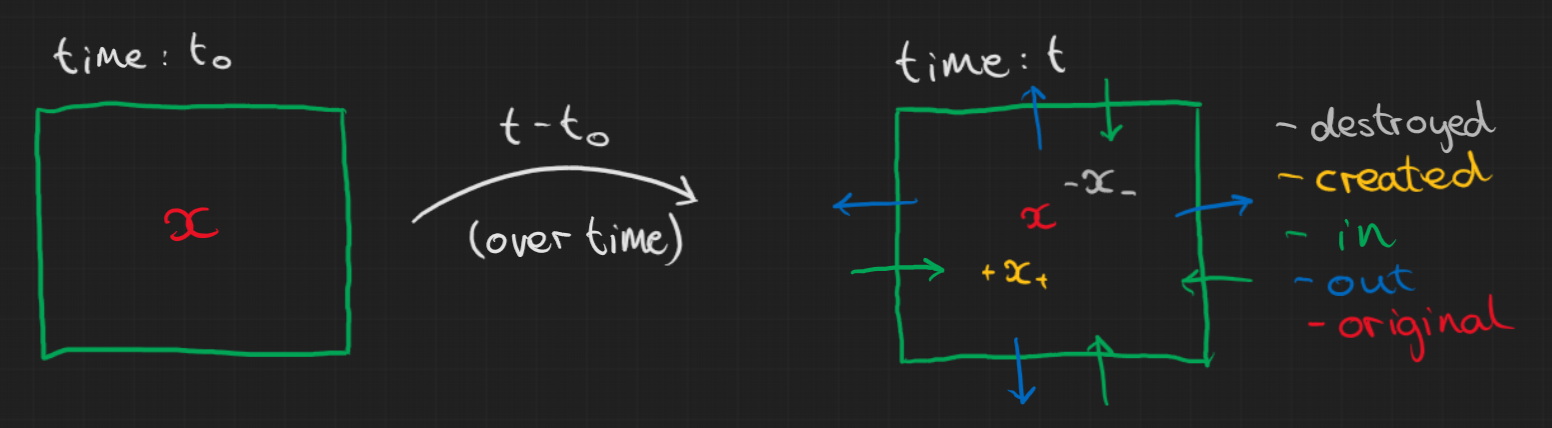 time: t₀
x
t - t₀
(over time)
time: t
- x₋
x
+ x₊
- destroyed
- created
- in
- out
- original